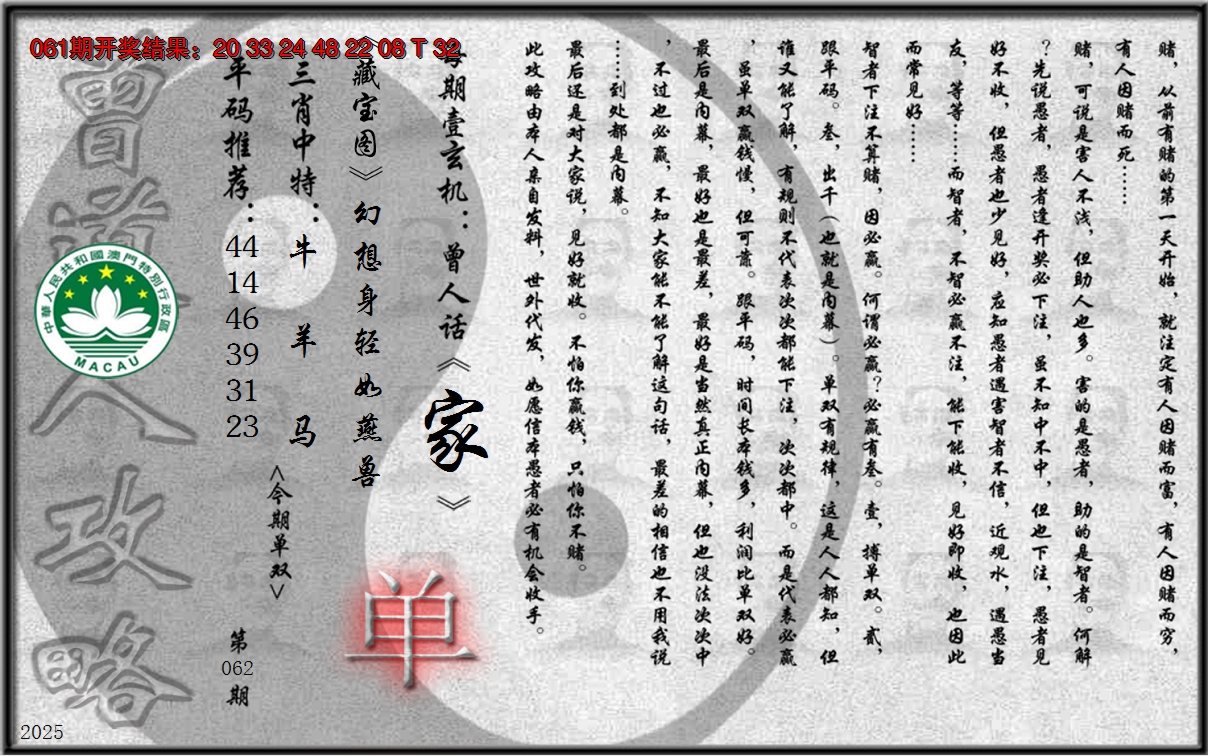 061期开奖结果：20 33 24 48 22 08 T 32
赌，从前有赌的第一天开始，就注定有人因赌而富，有人因赌而穷，
有人因赌而死……
赌，可说是害人不浅，但助人也多。害的是愚者，助的是智者。何解
？先说愚者，愚者逢开奖必下注，虽不知中不中，但也下注，愚者见
好不收，但愚者也少见好，应知愚者遇害智者不信，近观水，遇愚当
友，等等……而智者，不智必赢不注，能下能收，见好即收，也因此
而常见好……
智者下注不算赌，因必赢。何谓必赢？必赢有叁。壹，搏单双。贰，
跟平码。叁，出千（也就是内幕）。单双有规律，这是人人都知，但
谁又能了解，有规则不代表次次都能下注，次次都中。而是代表必赢
，虽单双赢钱慢，但可靠。跟平码，时间长本钱多，利润比单双好。
最后是内幕，最好也是最差，最好是当然真正内幕，但也没法次次中
，不过也必赢，不知大家能不能了解这句话，最差的相信也不用我说
……到处都是内幕。
最后还是对大家说，见好就收。不怕你赢钱，只怕你不赌。
此攻略由本人亲自发料，世外代发，如愿信本愚者必有机会收手。
每期壹玄机：曾人话《家》
《藏宝图》幻想身轻如燕兽
单
三肖中特：牛 羊 马
<今期单双>
平码推荐：44 14 46 39 31 23
第062期
曾道人攻略
中華人民共和國澳門特別行政區
MACAU
2025